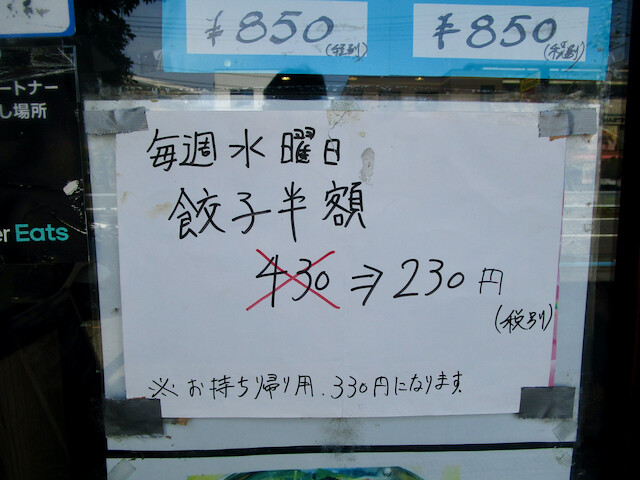 ¥850
(税別)
¥850
(税別)
ートナー
し場所
er Eats
毎週水曜日
餃子半額
430⇒230円
(税別)
※お持ち帰り用、330円になります